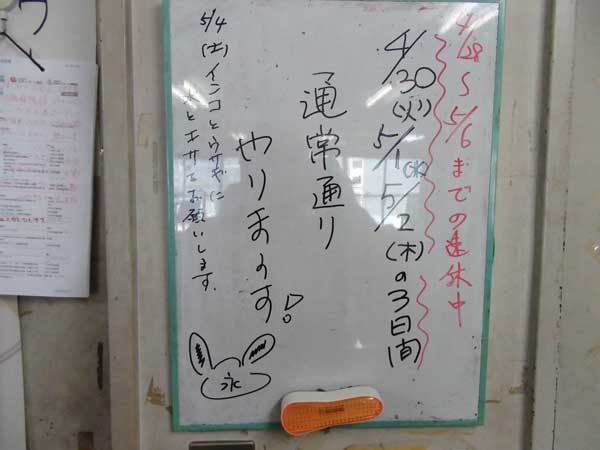 4/28〜5/6までの連休中
4/30(火)5/1(水)5/2(木)の3日間
通常通り
やりまーす!
5/4(土)インコとウサギに
水とエサをお願いします。